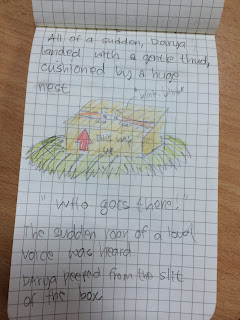 All of a sudden, Danya
landed with a gentle thud,
cushioned by a huge
nest
THIS WAY
UP
"Who goes there!"
The sudden roar of a loud
voice was heard.
Danya peeped from the slit
of the box.